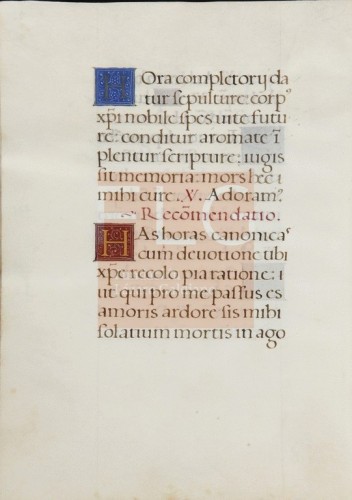 Hora completorij da
tur sepulture: corpꝰ
xp̄i nobile spes uite futu
re: conditur aromate ī
plentur scripture: iugis
sit memoria: mors hec i
mihi cure. V. Adoram?
Recōmendatio.
Has horas canonicaˢ
cum deuotione tibi
xp̄e recolo pia ratione: i
ut qui pro me passus es
amoris ardore sis mihi
solatium mortis in ago